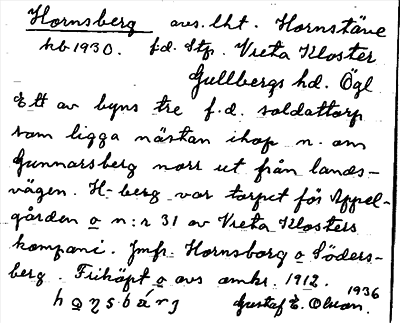 Hornsberg avs. lht. Hornstäve
hb 1930. f.d. Stp. Vreta Kloster
Gullbergs hd. Ögl
Ett av byns tre f.d. soldattorp
som ligga nästan ihop n. om
Gunnarsberg norr ut från lands-
vägen. H-berg var torpet för Appel-
gården o n:r 31 av Vreta Klosters
kompani. Jmfr. Hornsborg o Söders-
berg. Friköpt o avs omkr. 1912.
1936
Gustaf E. Olsson.